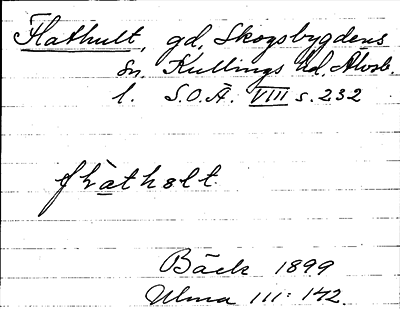 Flathult, gd, Skogsbygdens
sn. Kullings hd. Älvsb.
l. S.O.Ä. VIII s. 232
flàthult.
Bäck 1899
Ulma III: 142.